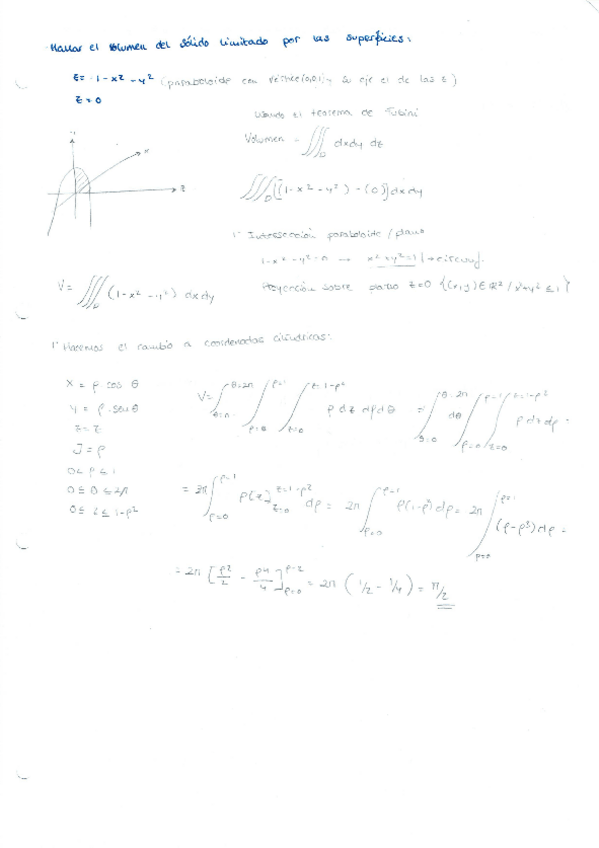 Hallar el volumen del sólido limitado por las superficies:
z = 1 - x² - y² (paraboloide con vértice (0,0,1) y su eje el de las z)
z = 0
Usando el teorema de Fubini
Volumen = ∭_D dxdy dz
∭_D [(1-x²-y²) - (0)] dxdy
1º Intersección paraboloide / plano
1-x²-y²=0 → x²+y²=1 → circunf.
V = ∭_D (1-x²-y²) dxdy
Proyección sobre plano z=0 {(x,y) ∈ R² / x²+y² ≤ 1}
1º Hacemos el cambio a coordenadas cilíndricas:
x = ρ cos θ
y = ρ · senθ
z = z
J = ρ
0 < ρ ≤ 1
0 ≤ θ ≤ 2π
0 ≤ z ≤ 1-ρ²
V = ∫_{θ=0}^{θ=2π} ∫_{ρ=0}^{ρ=1} ∫_{z=0}^{z=1-ρ²} ρ dz dρ dθ = ∫_{θ=0}^{θ=2π} dθ ∫_{ρ=0}^{ρ=1} ∫_{z=0}^{z=1-ρ²} ρ dz dρ =
= 2π ∫_{ρ=0}^{ρ=1} ρ[z]_{z=0}^{z=1-ρ²} dρ = 2π ∫_{ρ=0}^{ρ=1} ρ(1-ρ²) dρ = 2π ∫_{ρ=0}^{ρ=1} (ρ-ρ³) dρ =
= 2π [ρ²/2 - ρ⁴/4]_{ρ=0} = 2π (1/2 - 1/4) = π/2